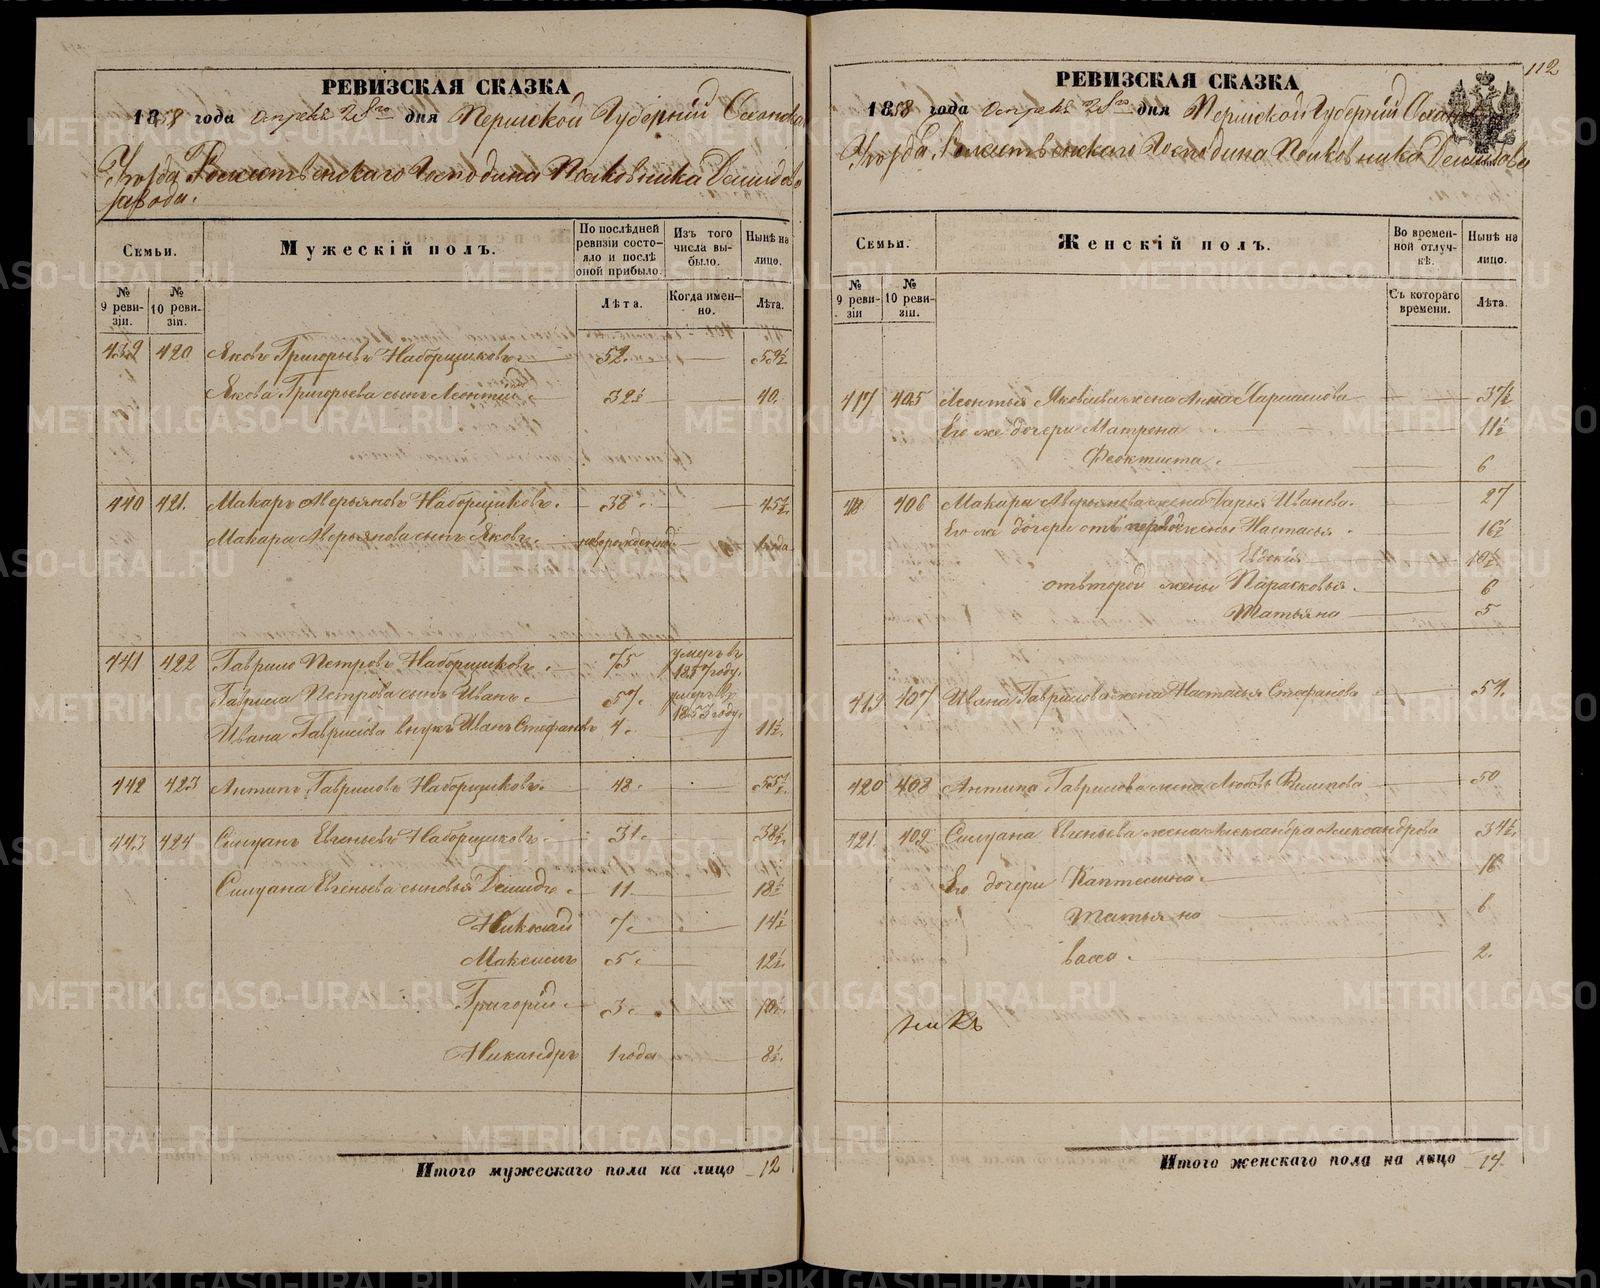 РЕВИЗСКАЯ СКАЗКА
1858 года Апреля 28го дня Пермской Губернiи Осинскаго
Уѣзда Рождественскаго Господина Полковника Демидова
завода.
Семьи.
Мужескiй полъ.
По послѣдней ревизiи состояло и послѣ оной прибыло.
Изъ того числа выбыло.
Нынѣ на лицо.
№ 9 ревизiи.
№ 10 ревизiи.
Лѣта.
Когда именно.
Лѣта.
439 420 Яковъ Григорьевъ Наборщиковъ 52. 59½
Якова Григорьева сынъ Леонтiй 32½ 40.
440 421. Макаръ Аверьяновъ Наборщиковъ. 38 45½.
Макара Аверьянова сынъ Яковъ. новорожденной 1 года
441 422 Гаврило Петровъ Наборщиковъ. 75 умеръ въ 1857 году.
Гаврила Петрова сынъ Иванъ. 57. умеръ въ 1853 году.
Ивана Гаврилова внукъ Иванъ Стефановъ 4. 11½.
442 423 Антипъ Гавриловъ Наборщиковъ. 48. 55½.
443 424 Силуанъ Евгеньевъ Наборщиковъ. 31. 38½.
Силуана Евгеньева сыновья Демидъ. 11. 18½
Николай 7. 14½
Максимъ 5. 12½.
Григорiй. 3. 10½.
Никандръ 1 года 8½.
Итого мужескаго пола на лицо 12
112
РЕВИЗСКАЯ СКАЗКА
1858 года Апреля 28го дня Пермской Губернiй
Уѣзда Рождественскаго Господина Полковника Демидова
Семьи.
Женскiй полъ.
Во временной отлучкѣ.
Нынѣ на лицо.
№ 9 ревизiи
№ 10 ревизiи.
Съ котораго времени.
Лѣта.
417 405 Леонтья Яковлева жена Анна 37½
Его же дочери Матрена 11½
Феоктиста. 6
418 406 Макара Аверьянова жена Дарья Иванова. 27
Его же дочери отъ первой жены Настасья. 16½
Евдокiя 10½
отъ второй жены Парасковья. 6
Татьяна 5
419 407 Ивана Гаврилова жена Настасья Стефанова 54.
420 408 Антипа Гаврилова жена Любовь Филипова 50
421. 409 Силуана Евгеньева жена Александра Александрова 34½.
Его дочери Каптелина. 16
Татьяна 6
Васса. 2.
Итого женскаго пола на лицо 14.
METRIKI.GASO-URAL.RU